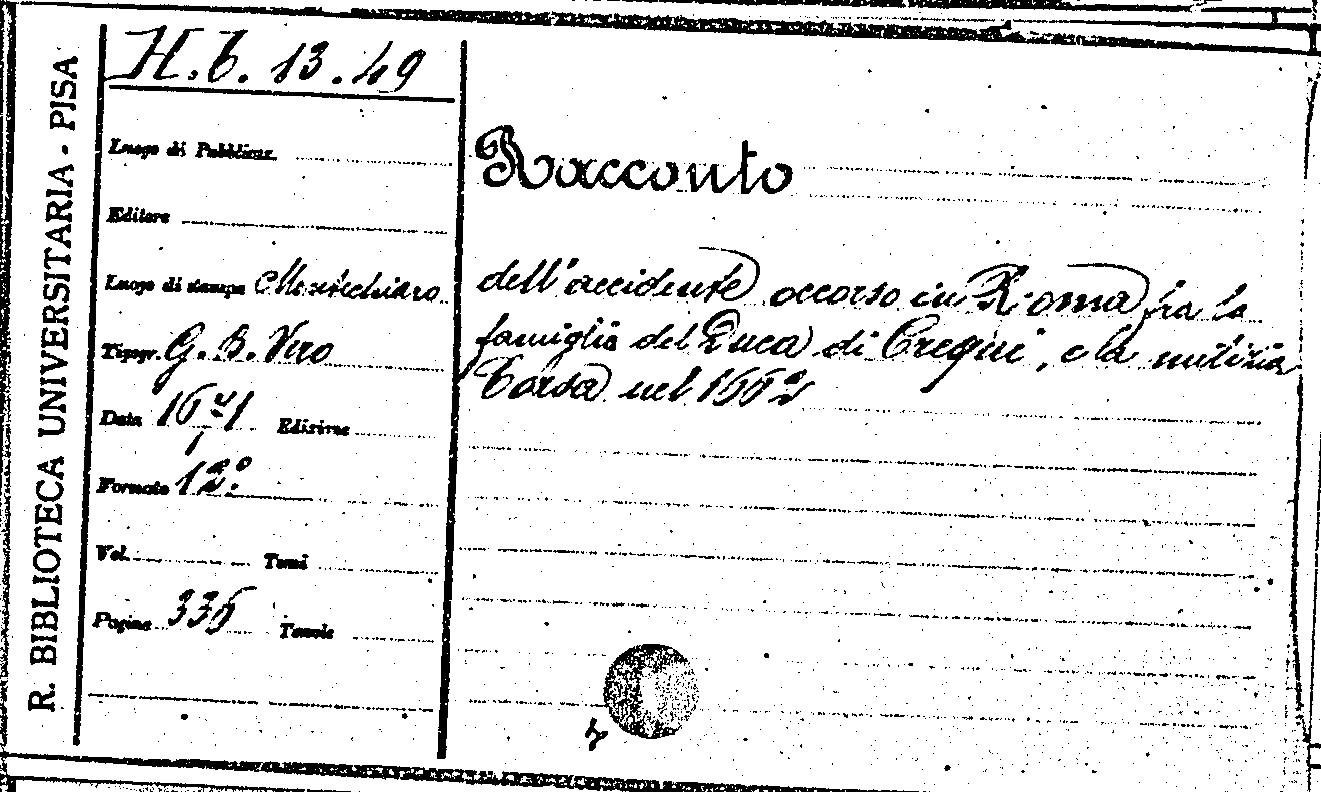 R. BIBLIOTECA UNIVERSITARIA - PISA
H. b. 13. 49
Luogo di Pubblicaz.
Editore
Luogo di stampa Montechiaro
Tipogr. G. B. Vero
Data 1671 Edizione
Formato 12º
Vol. Tomi
Pagine 336 Tavole
Racconto
dell'accidente occorso in Roma fra la
famiglia del Duca di Crequi, e la milizia
Corsa nel 1662